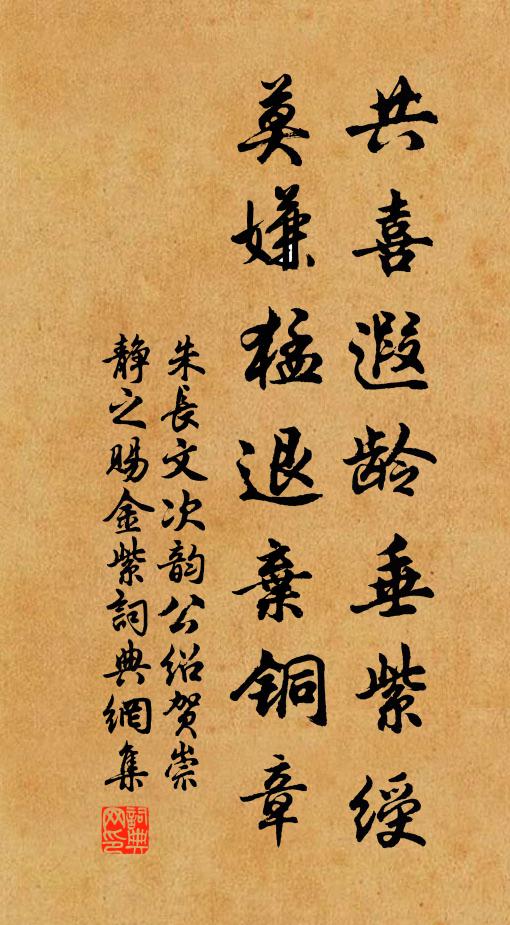 共喜遐龄垂紫绶
莫嫌猛退棄铜章
朱長文次韵公绍贺崇
静之赐金紫詞典網集
詞典
网印